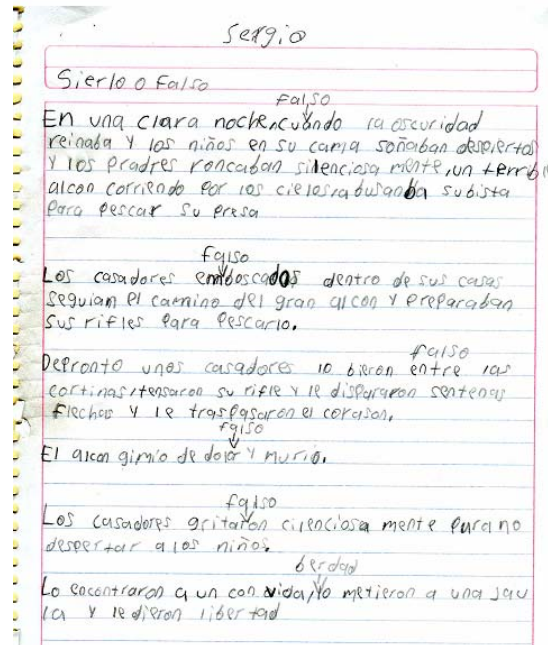 Sergio
Sierlo o Falso
Falso
En una clara noche, cuando la oscuridad
reinaba y los niños en su cama soñaban despiertos
y los pradres roncaban silenciosa mente, un terrible
alcon corriendo por los cielos, abusanba su bista
para pescar su presa
falso
Los casadores emboscados dentro de sus casas
seguian el camino del gran alcon y preparaban
sus rifles para pescarlo.
falso
Depronto unos casadores lo bieron entre las
cortinas, tensaron su rifle y le dispararon sentenas
flechas y le traspasaron el corason.
falso
El alcon gimio de dolor y murio.
falso
Los casadores gritaron cilenciosa mente para no
despertar a los niños.
berdad
Lo encontraron a un con vida, lo metieron a una jau
la y le dieron libertad